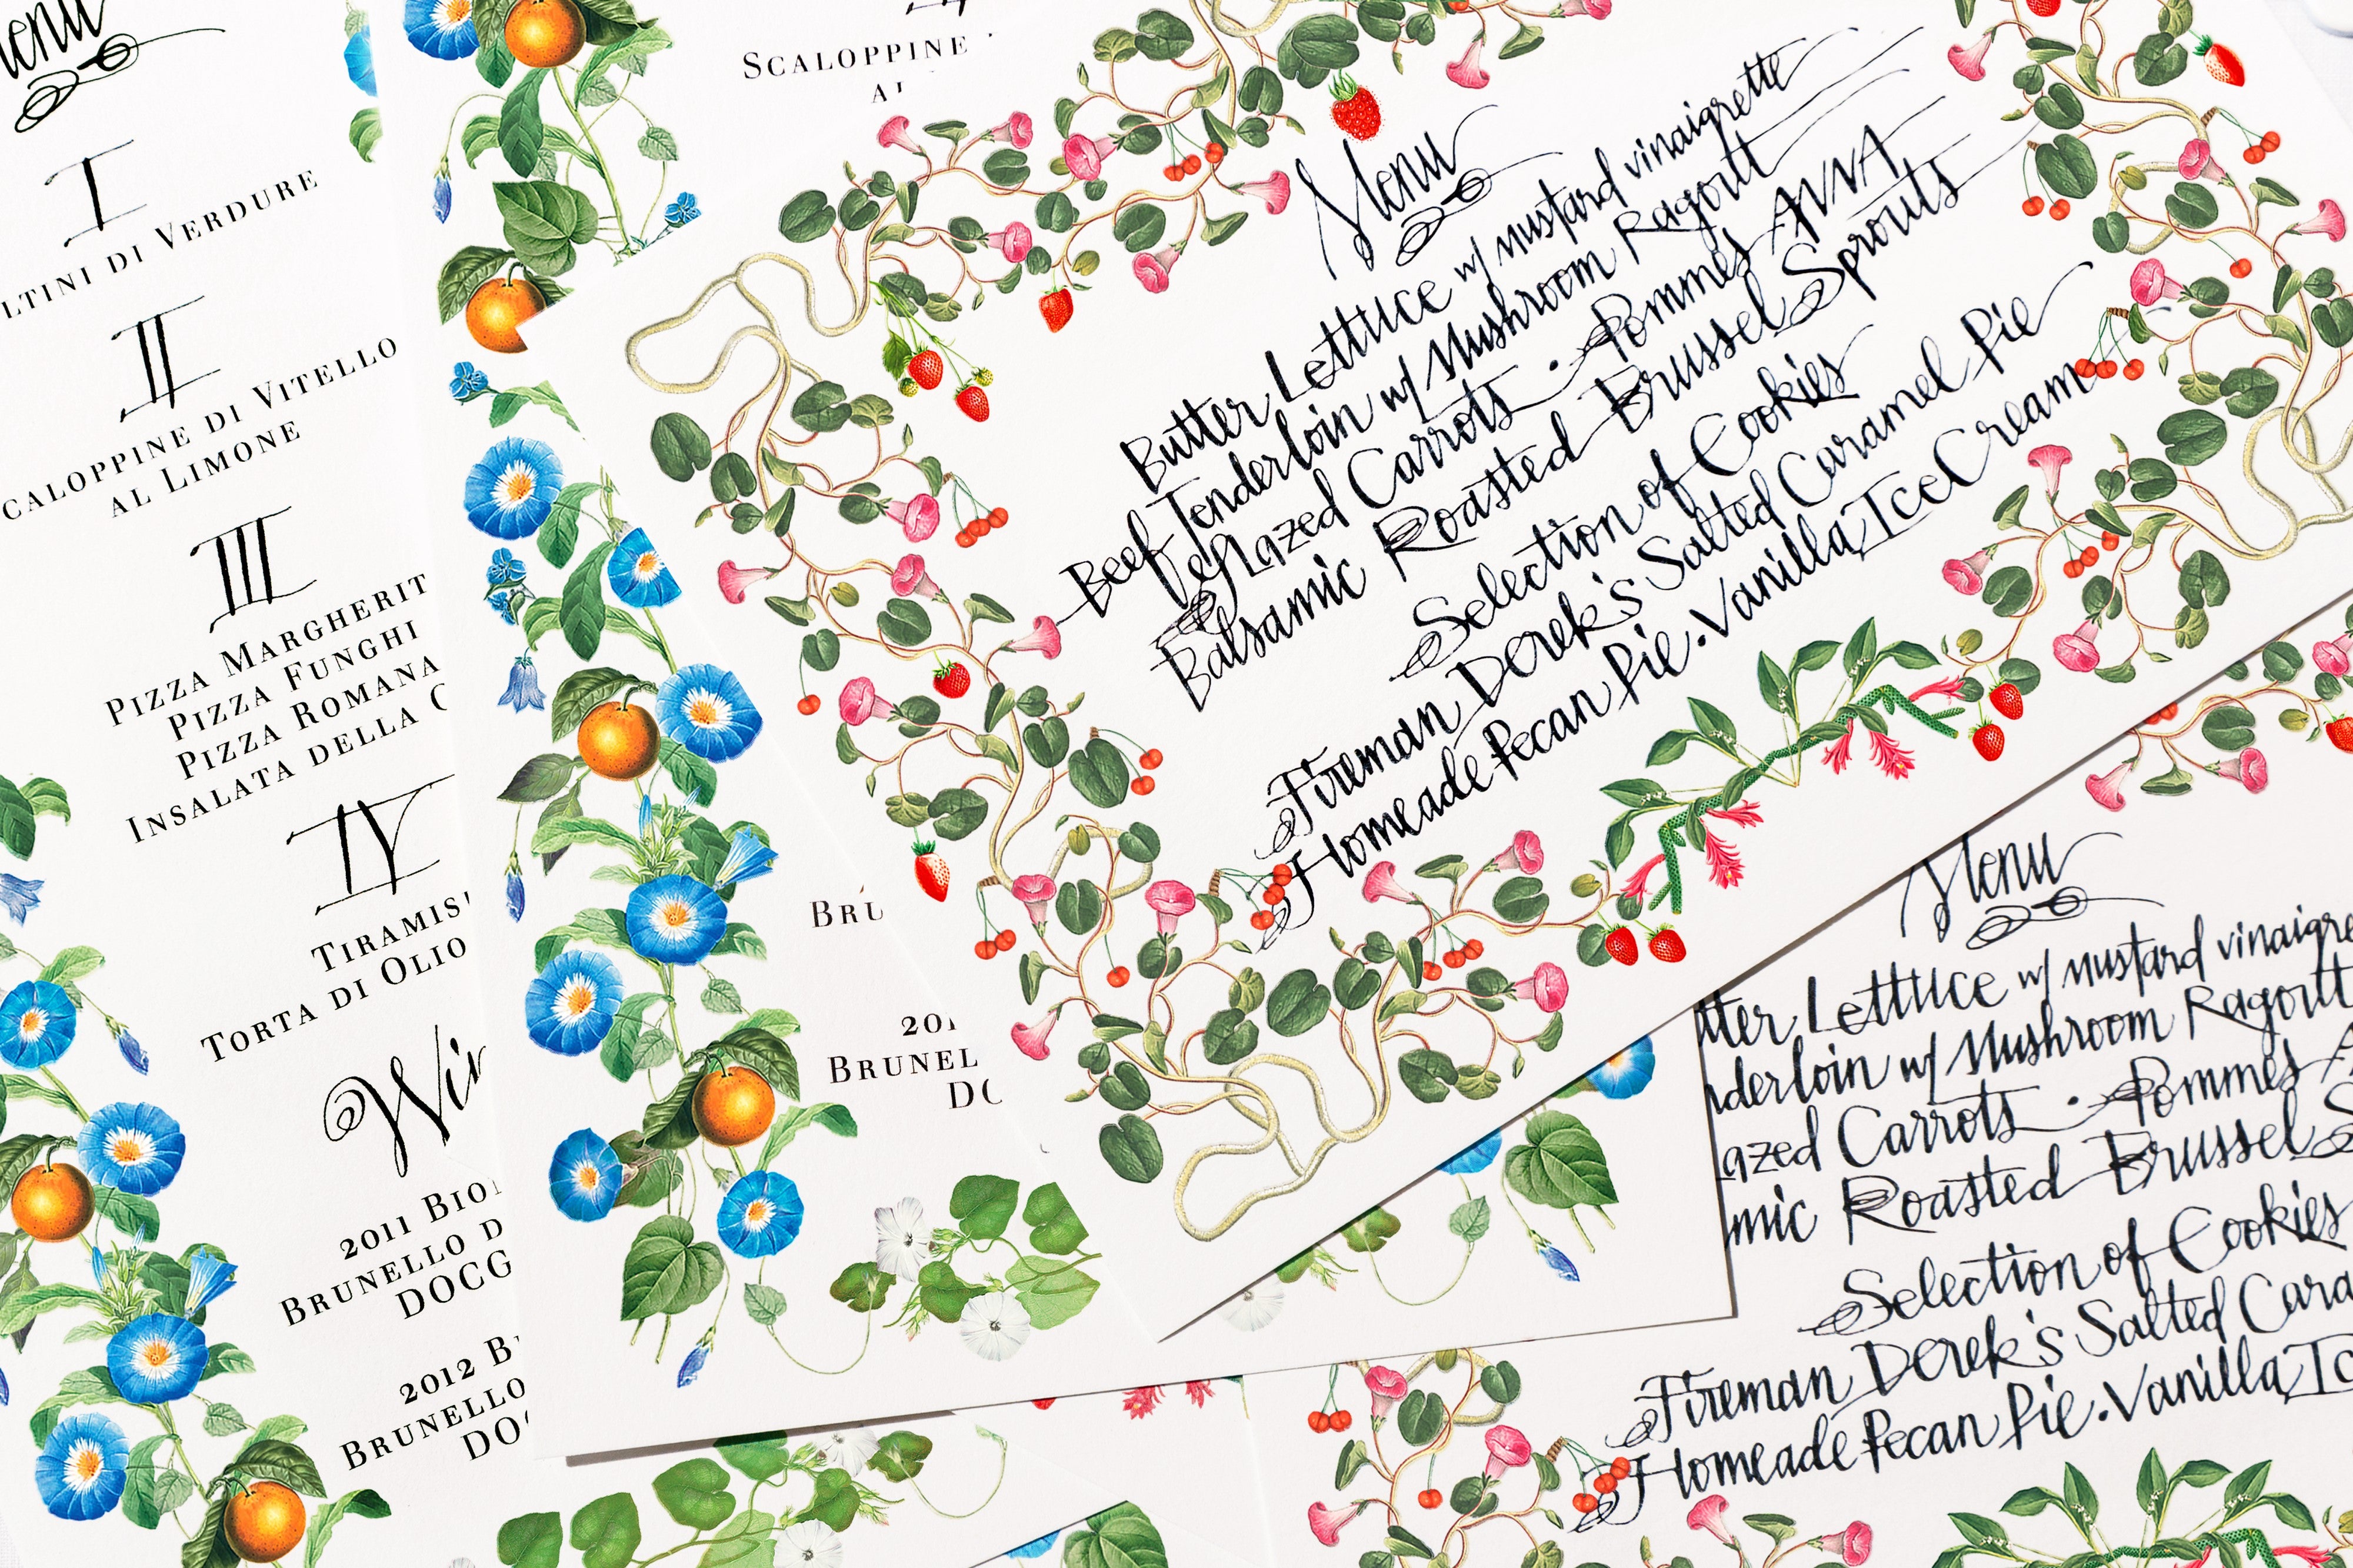 Menu
I
LTINI DI VERDURE
II
CALOPPINE DI VITELLO
AL LIMONE
III
PIZZA MARGHERIT
PIZZA FUNGHI
PIZZA ROMANA
INSALATA DELLA C
IV
TIRAMIS
TORTA DI OLIO
Win
2011 BIO
BRUNELLO D
DOCG
2012 B
BRUNELLO
DO
SCALOPPINE
AL
BRÚ
201
BRUNEL
DC
Menu
Butter Lettuce w/ mustard vinaigrette
Beef Tenderloin w/ Mushroom Ragout
Glazed Carrots • Pommes ANNA
Balsamic Roasted Brussel Sprouts
Selection of Cookies
Fireman Derek's Salted Caramel Pie
Homeade Pecan Pie. Vanilla Ice Cream
Menu
tter Lettuce w/ mustard vinaigre
nderloin w/ Mushroom Ragout
azed Carrots • Pommes A
mic Roasted Brussel S
Selection of Cookies
Fireman Derek's Salted Cara
Homeade Pecan Pie. Vanilla Ic